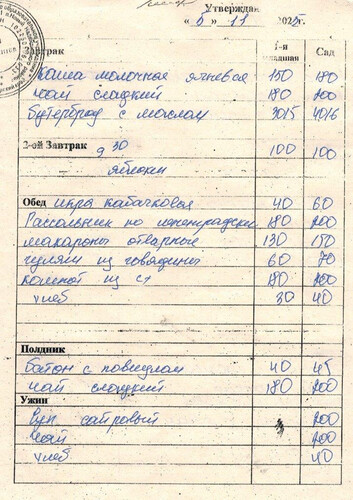 Утверждаю
« 5 » 11 2025г.
Завтрак 1-я младшая Сад
Каша молочная ячневая 150 180
Чай сладкий 180 200
Бутерброд с маслом 30/5 40/6
2-ой Завтрак 9 30 100 100
яблоки
Обед икра кабачковая 40 60
Рассольник по ленинградски 180 200
макароны отварные 130 150
гуляш из говядины 60 70
компот из с/ 180 200
хлеб 30 40
Полдник
батон с повидлом 40 45
чай сладкий 180 200
Ужин
Суп сайровый 200
Чай 200
хлеб 40